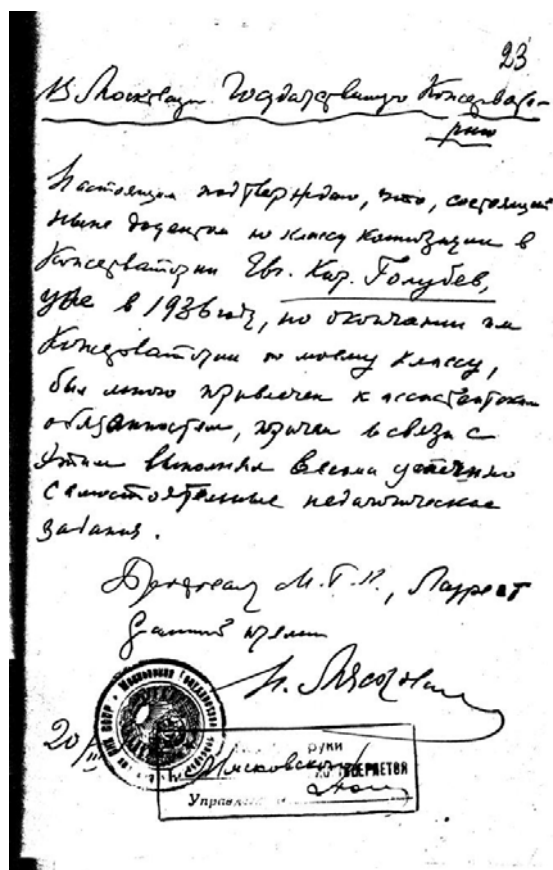 23
В Московскую Государственную Консервато-
рию
Настоящим подтверждаю, что, состоящий
ныне доцентом по классу композиции в
Консерватории Евг. Кир. Голубев,
уже в 1936 году, по окончании им
Консерватории по моему классу,
был мною привлечен к ассистентским
обязанностям, причем в связи с
этим выполнял весьма успешно
самостоятельные педагогические
задания.
Профессор М.Г.К., Лауреат
премии
Н. Мясковский
20/III
руки
Мясковского
Управл